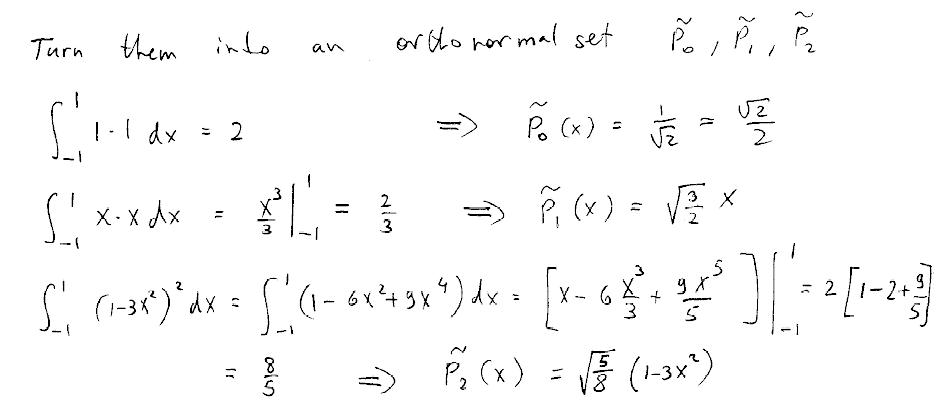 Turn them into an orthonormal set P̃₀, P̃₁, P̃₂
∫₋₁¹ 1·1 dx = 2 ⇒ P̃₀(x) = 1/√2 = √2/2
∫₋₁¹ x·x dx = x³/3 |₋₁¹ = 2/3 ⇒ P̃₁(x) = √(3/2) x
∫₋₁¹ (1-3x²)² dx = ∫₋₁¹ (1 - 6x² + 9x⁴) dx = [x - 6 x³/3 + 9x⁵/5] |₋₁¹ = 2 [1-2+9/5]
= 8/5 ⇒ P̃₂(x) = √(5/8) (1-3x²)